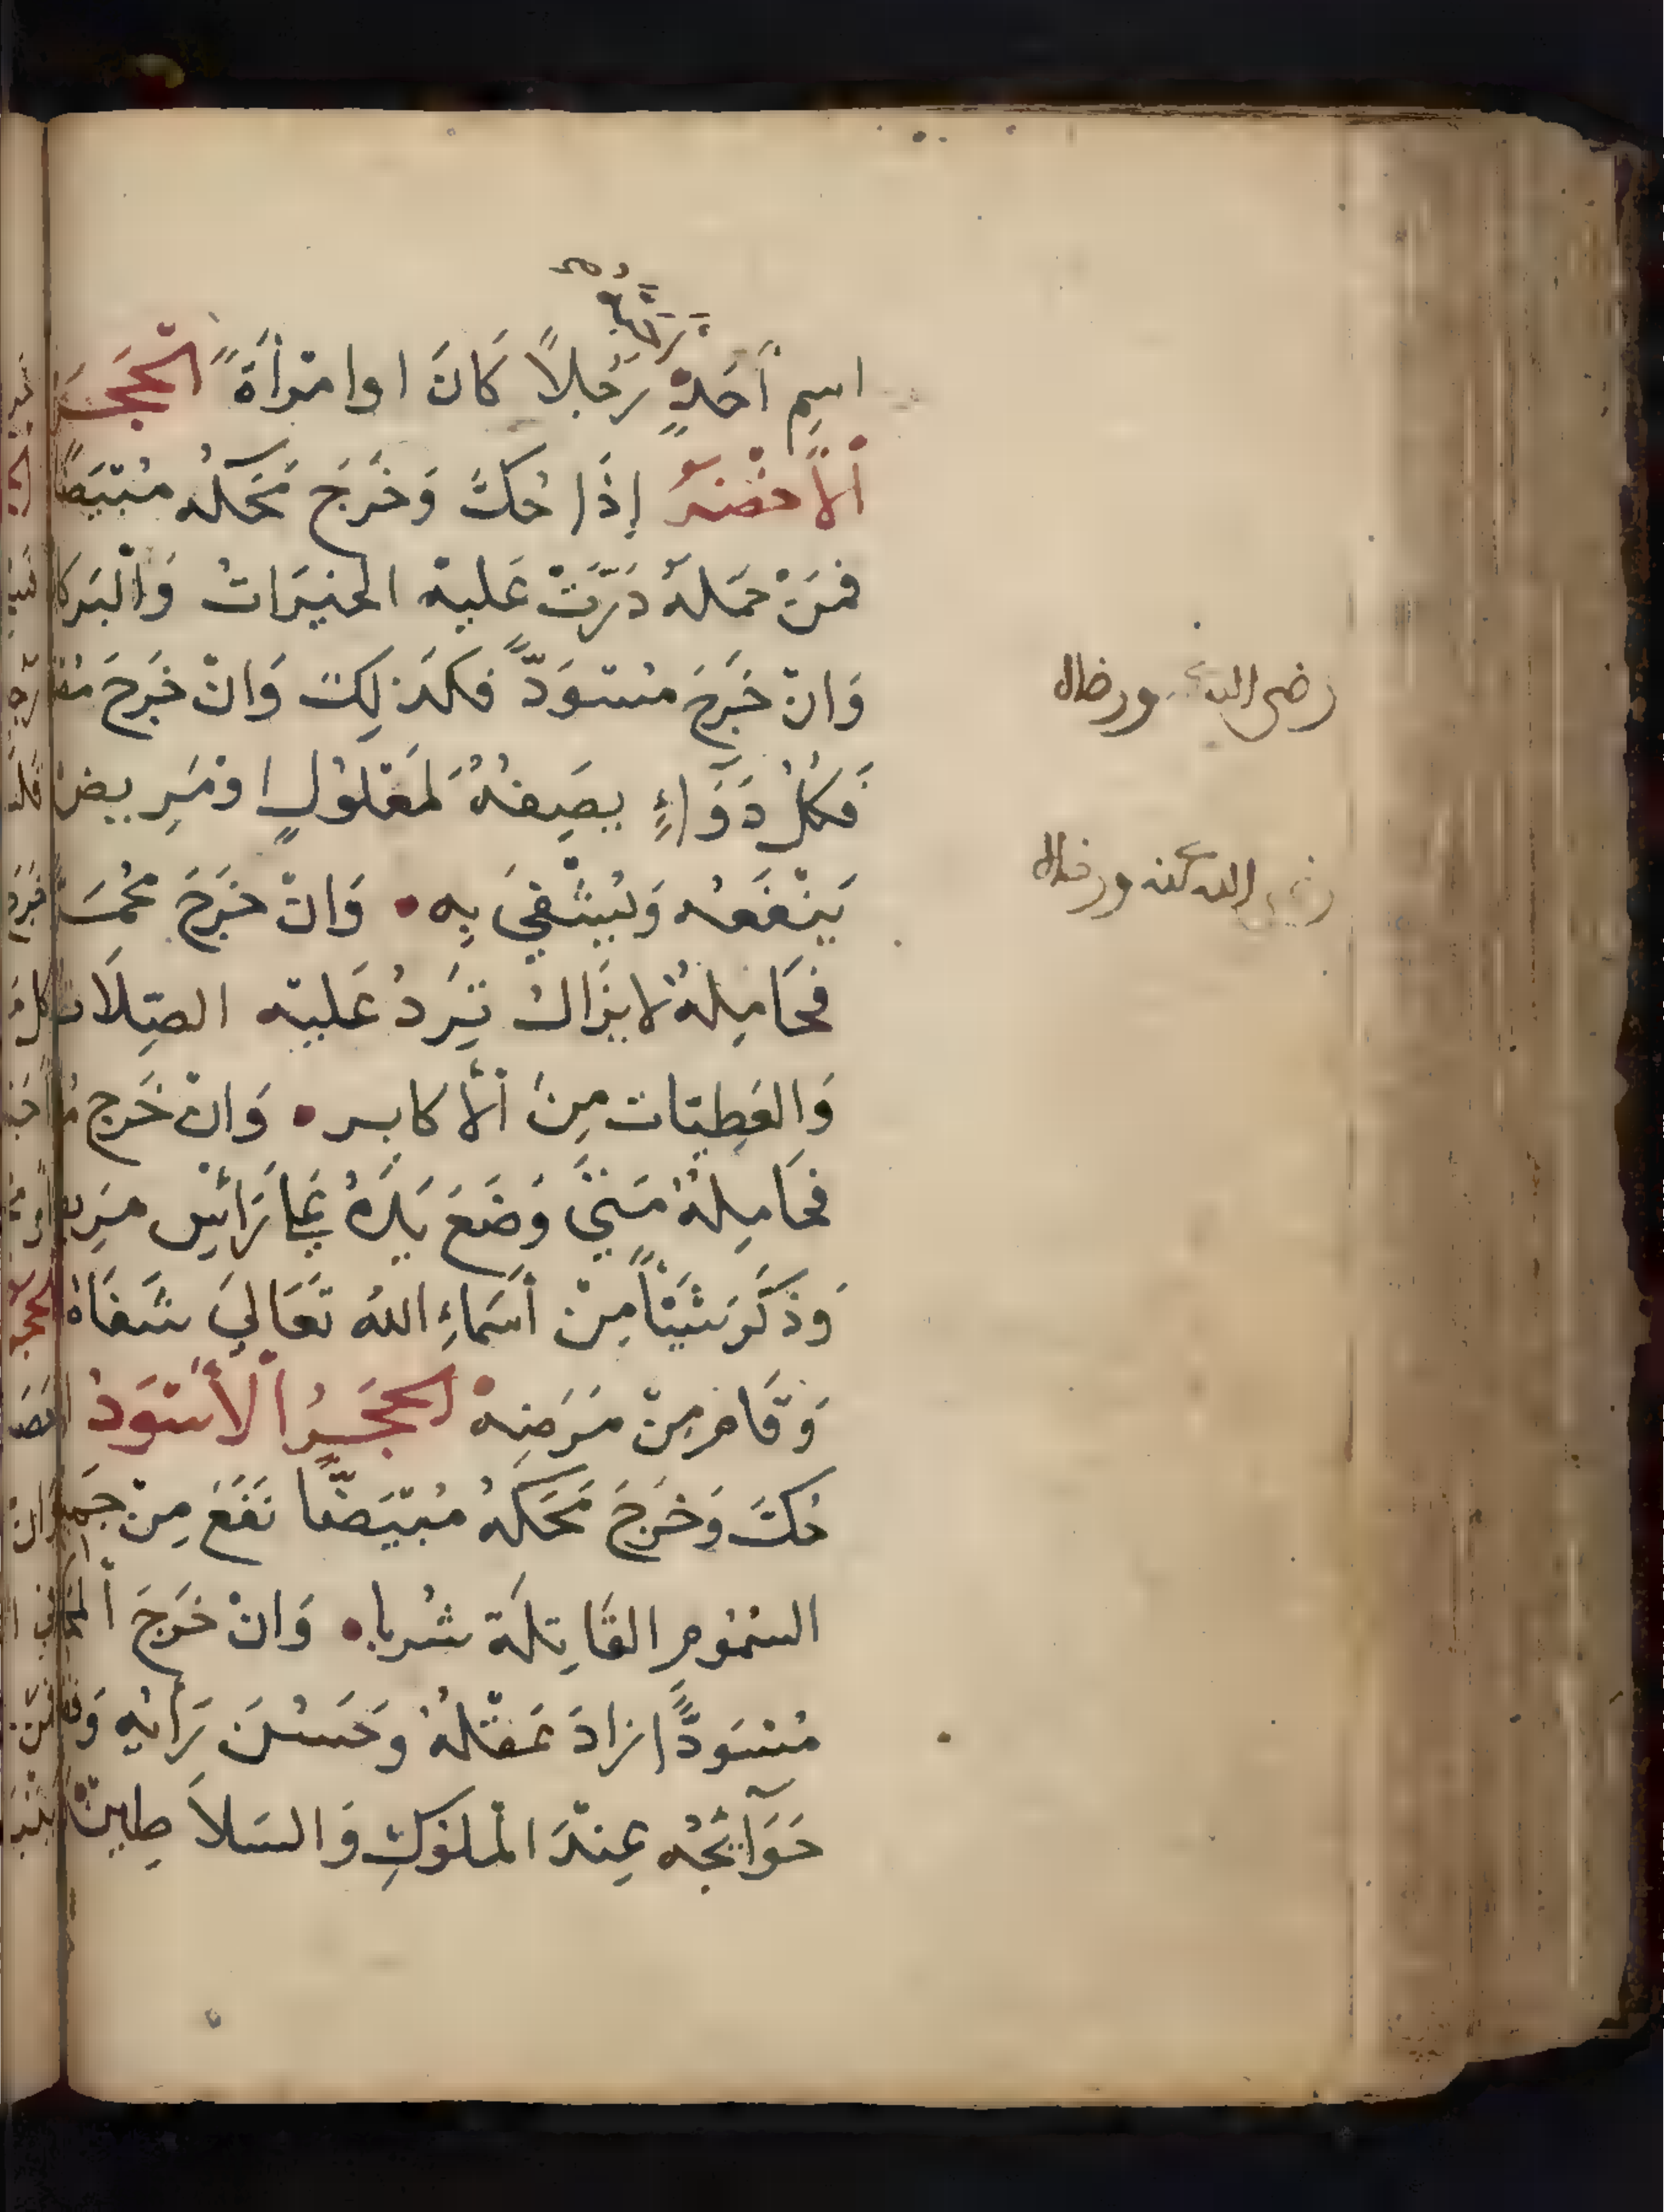 اسمِ أَحَدٍ رَجُلاً كَانَ اوامْرأَةً الْحَجَرُ
اْلأَخْضَرُ إِذَا حُكَّ وَخَرَجَ مَحَكُّه مُبْيَضًا
فمَنْ حَمَلهُ دَرَّتْ عَليْهِ الخَيْرَاتُ وَالْبَركا
وَانْ خَرَجَ مسْوَدًّ فكَذلِكَ وَانْ خَرَجَ
فَكُلُّ دَوَاءٍ يصَيفُهُ لمَعْلُولٍ اوْمَرِيضٍ
يَنْفَعُه وَيُشْفيَ بِهِ وَانْ خَرَجَ مُحْمَرًّ
فحَامِلهُ لايزَالُ تَرِدُ عَليْهِ الصِّلاَت
وَالعَطِيّات مِنَ اْلأَكابِر وَانْ خَرَج
فحَامِلهُ مَتيَ وَضَعَ يَدَهُ عَلَى رَأْسِ مَرِيض
وَذَكَرَ شَيْئاً مِنْ أَسمَاءِ اللهِ تَعَاليَ شَفَاهُ
وَقَامَ مِنْ مَرَضِهِ الحَجَرُ اْلأَسْوَدُ
حُكَّ وَخَرَجَ مَحَكُهُ مُبْيَضّا نَفَعَ مِنْ جَميع
السُّمُومِ القَاتِلَة شُربا وَانْ خَرَجَ
مُسْوَدًّا زادَ عَقْلهُ وحَسُنَ رَأيُهِ
حَوَآئجُه عِنْدَ الْملوُكِ وَالسَلاَطِينْ
رضى الله ورضاه
الله عنه ورضاه